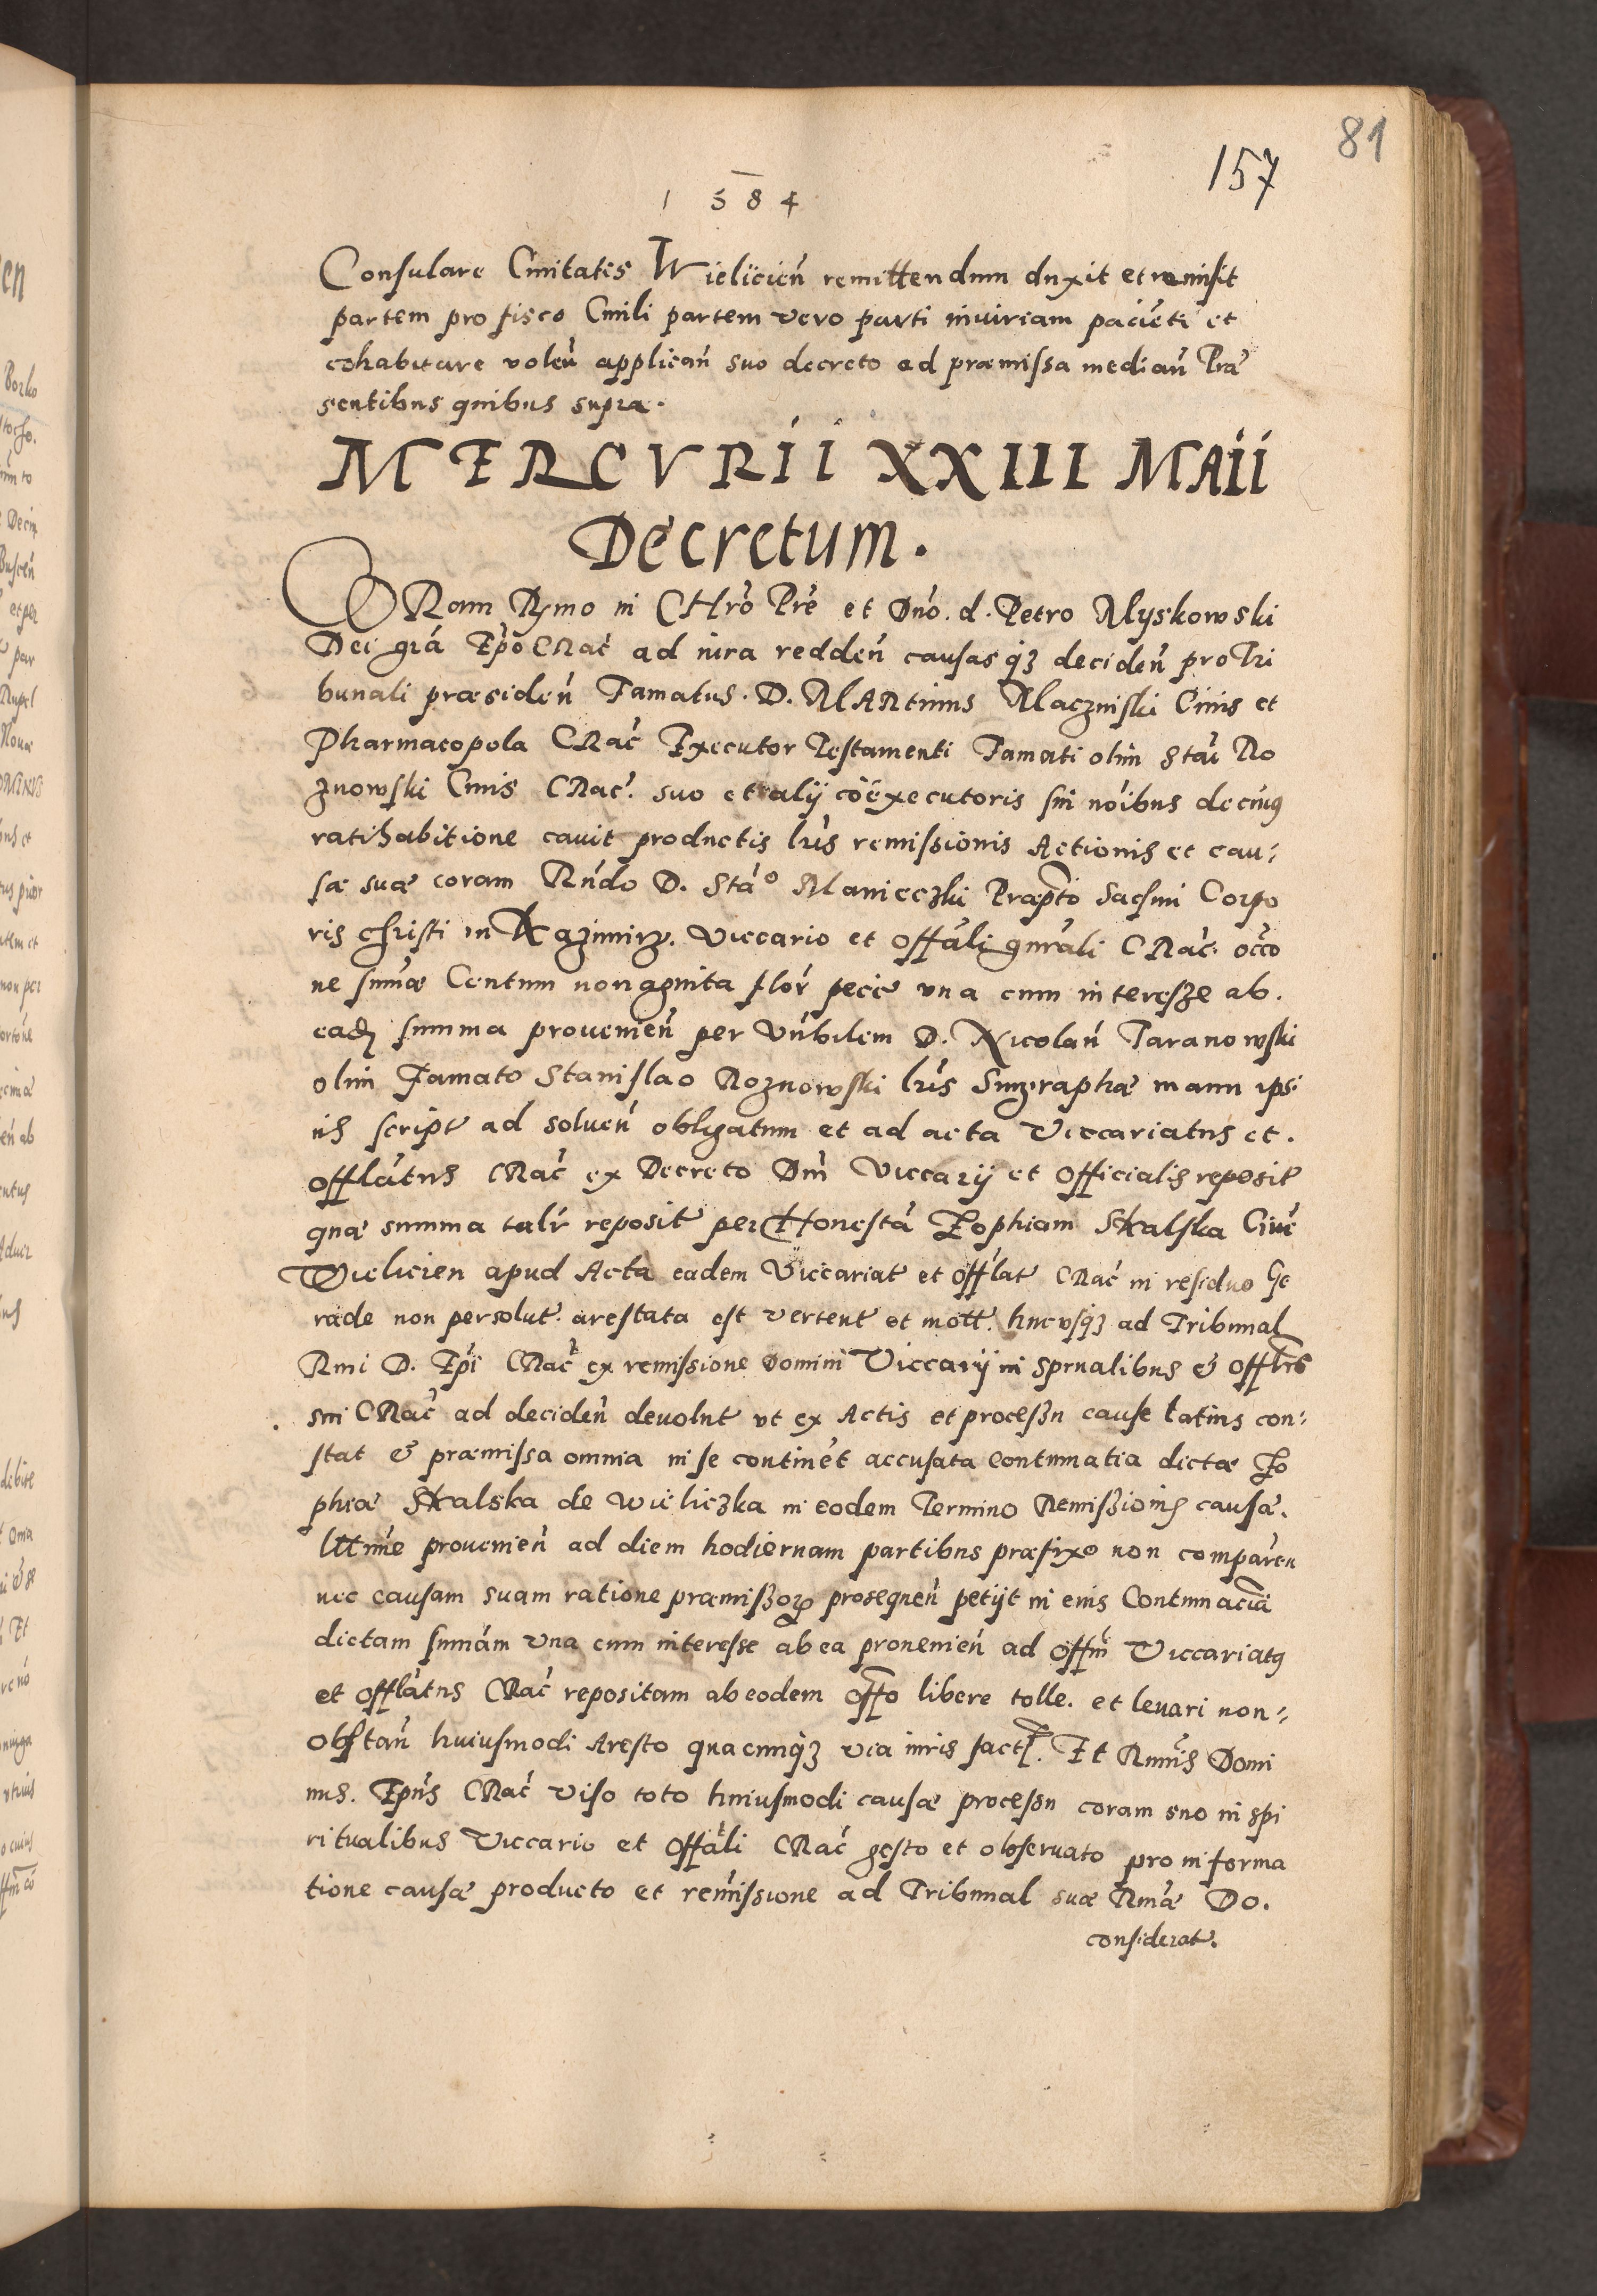 81
157
1584
Consulare Ciuitatis Wielicien̄ remittendum duxit et remisit
partem pro fisco Ciuili partem vero parti iniuriam pacie͞ti et
cohabitare volen̄ applican̄ suo decreto ad præmissa median̄ Præ
sentibus quibus supra.
MERCVRII XXIII MAII
Decretum.
CORam R͞mo in CHr͞o Pr͞e et Dn͞o. d. Petro Myskowski
Dei gr͞a Ep͞o CRac̄ ad iura redden̄ causasq͏̄ʒ deciden̄ pro Tri
bunali præsiden̄ Famatus. D. MARtinus Maczinski Ciuis et
Pharmacopola CRac̄ Executor Testamenti Famati olim Sta͞i Ro
znowski Ciuis CRac̄. suo et alij coëxecutoris sui no͞ibus de cuiꝯ
ratihabitione cauit productis l͞ris remissionis Actionis et cau-
sæ suæ coram Rn͞do D. Sta͞o Manieczki Præp͞to Sac͞mi Corpo
ris christi in Kazimirz. Viccario et Offa͞li gn͞rali CRac̄. occ͞o
ne sum͞æ Centum nonaginta flor͞ pec͞ie vna cum interesze ab.
ead͞ summa prouenien̄ per Vn͞bilem D. Nicolau͞ Taranowski
olim Famato Stanislao Roznowski l͞ris Singraphæ manu ipsi
us script ad soluen̄ obligatum et ad acta Viccariatus et.
Offla͞tus CRac̄ ex Decreto Dn͞i Viccarij et Officialis reposit
quæ summa tal͞r reposit per Honesta͞ Zophiam Skalska Ciue͞
Wielicien apud Acta eadem Viccariat et Offl͞at CRac̄ in residuo Ge
rade non persolut. arestata est vertent et mott. hucusq͏̄ʒ ad Tribunal
Rmi D. Ep͞i CRac̄ ex remissione Domini Viccarij in sprualibus & Offl͞is
sui CRac̄ ad deciden̄ deuolut vt ex Actis et processu cause latius con-
stat & præmissa omnia in se contine͞t accusata contumatia dictæ Zo
phiæ Skalska de Wieliczka in eodem Termino Remissionis causæ.
l͞ttime prouenien̄ ad diem hodiernam partibus præfixo non comparen
nec causam suam ratione præmissorꝝ prosequen̄ petijt in eius Contumacia͞
dictam sum͞am vna cum interesse ab ea prouenien̄ ad Off͞m Viccariatꝯ
et Offla͞tus CRac̄ repositam ab eodem Off͞o libere tolle. et leuari non-
Obstan̄ huiusmodi Aresto quacumq͏̄ʒ via iuris fact. Et Rm͞us Domi
nus. Ep͞us CRac̄ viso toto huiusmodi causæ processu coram suo in spi
ritualibus Viccario et Offa͞li CRac̄ gesto et obseruato pro informa
tione causæ producto et remissione ad Tribunal suæ Rm͞æ Do.
considerat.